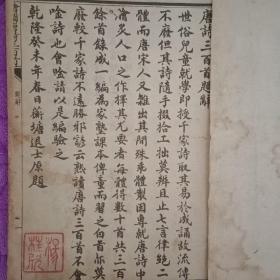 唐詩三百首題辭
世俗兒童就學即授千家詩取其易於成誦故流傳
不廢但其詩隨手掇拾工拙莫辨且止七言律絕二
體而唐宋人又雜出其間殊乖體製因專就唐詩中
膾炙人口之作擇其尤要者每體得數十首共三百
餘首錄成一編為家塾課本俾童而習之白首亦莫
廢較千家詩不遠勝耶諺云熟讀唐詩三百首不會
吟詩也會吟請以是編驗之
乾隆癸未年春日蘅塘退士原題